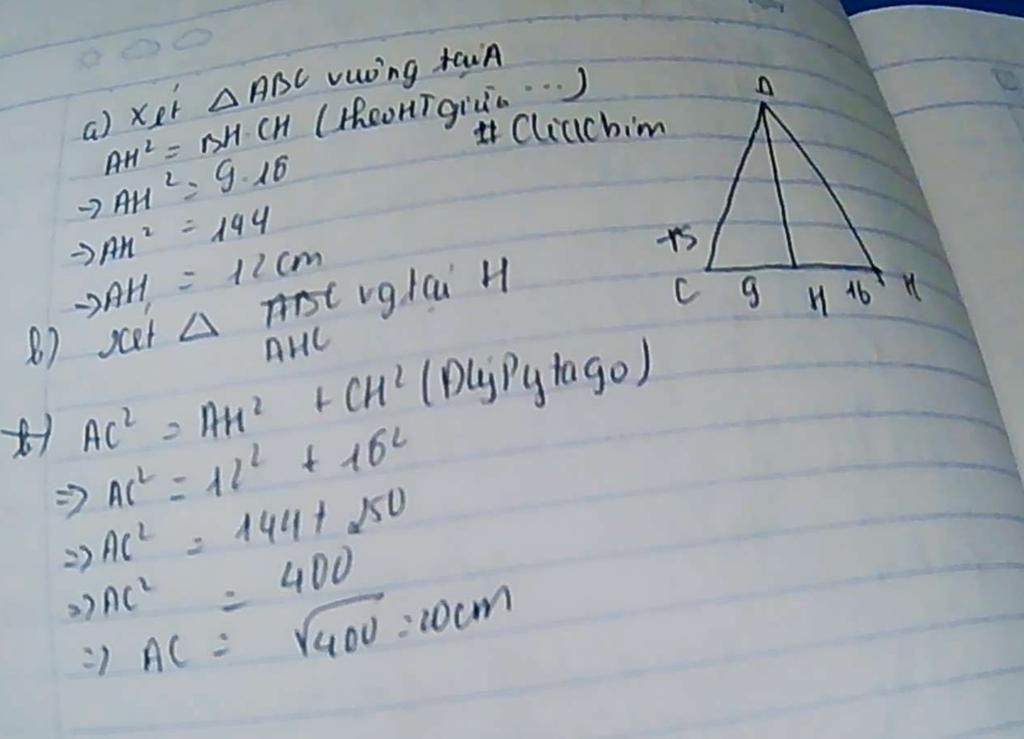 a) Xét △ ABC vuông tại A
AH² = BH.CH (theo HT giữa ...)
# Clickbim
→ AH² = 9.16
→ AH² = 144
→ AH = 12cm
b) xét △ ABC vg tại H
AHC
b) AC² = AH² + CH² (Dlý Pytago)
⇒ AC² = 12² + 16²
⇒ AC² = 144 + 250
⇒ AC² = 400
⇒ AC = √400 = 20cm
A
15
C 9 H 16 H